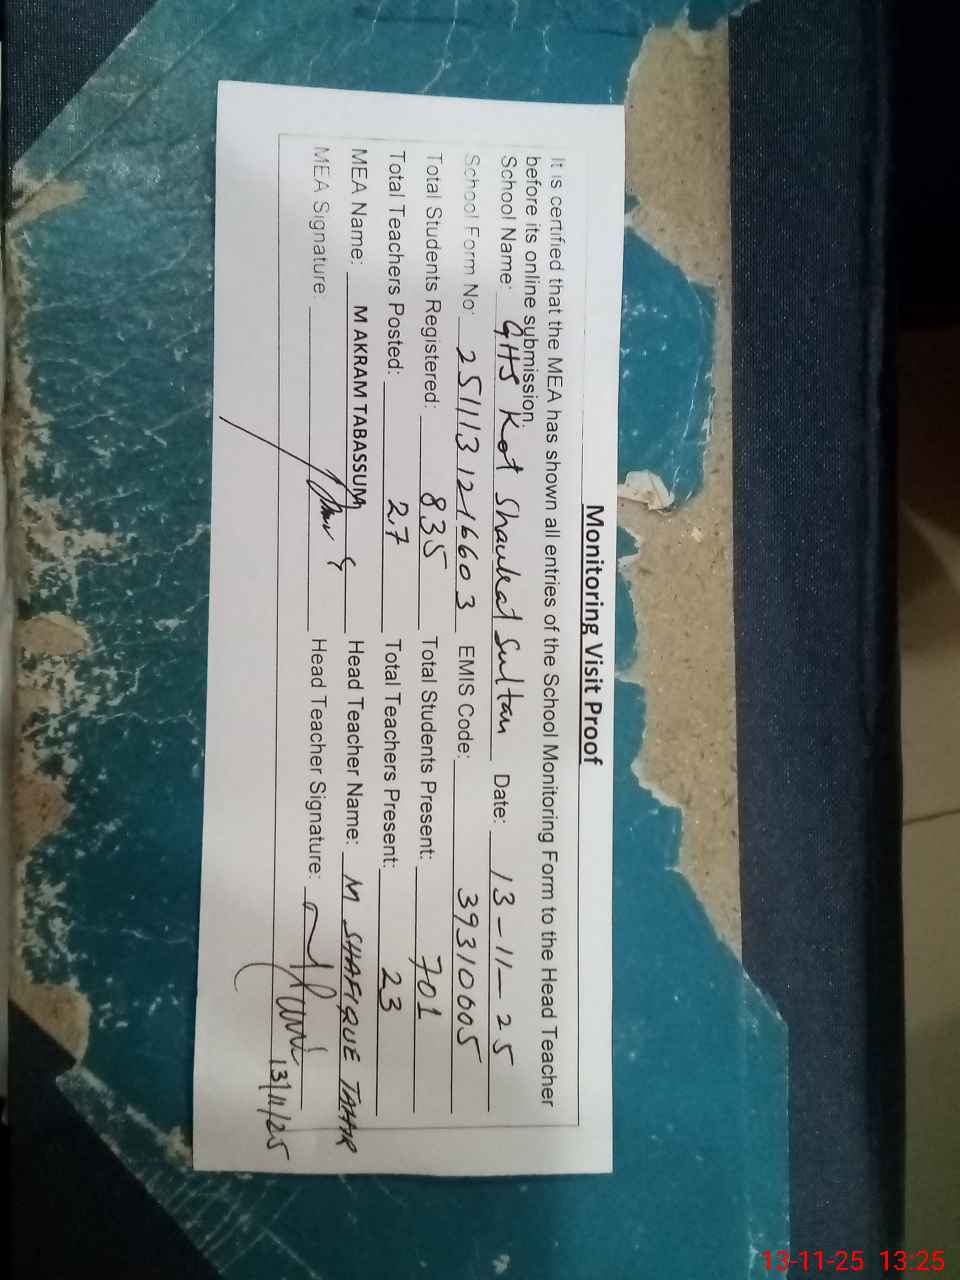 Monitoring Visit Proof
It is certified that the MEA has shown all entries of the School Monitoring Form to the Head Teacher
before its online submission.
School Name: GHS Kot Shaukat Sultan Date: 13-11-25
School Form No: 2511131216603 EMIS Code: 39310005
Total Students Registered: 835 Total Students Present: 701
Total Teachers Posted: 27 Total Teachers Present: 23
MEA Name: M AKRAM TABASSUM Head Teacher Name: M SHAFIQUE TAHIR
MEA Signature: Head Teacher Signature:
13/11/25
13-11-25 13:25